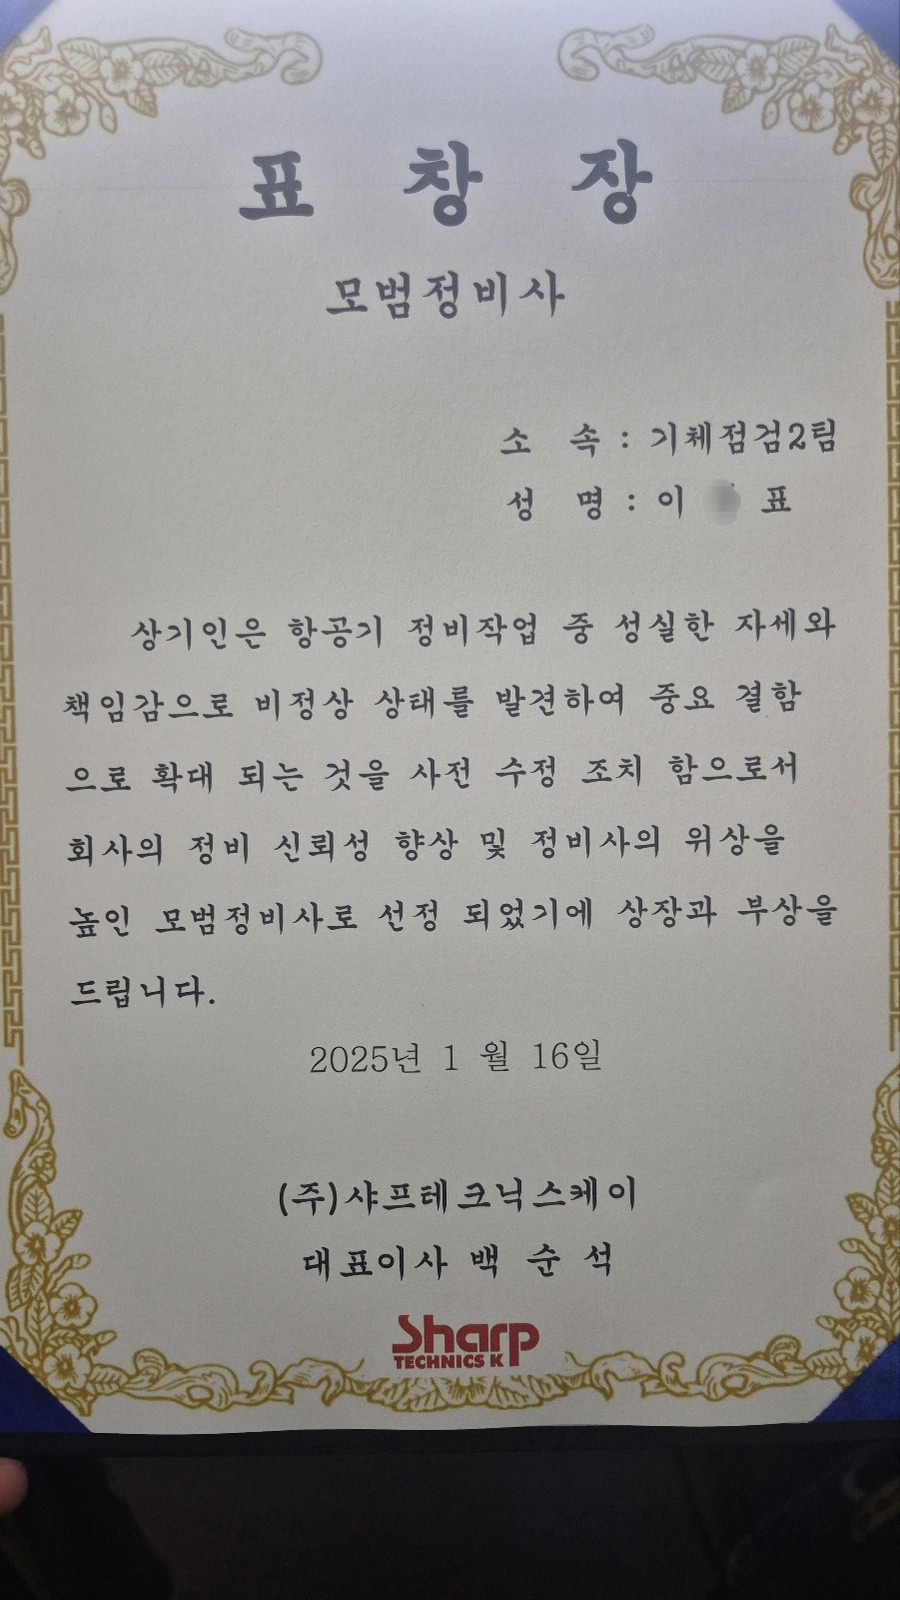 표 창 장
모범정비사
소 속 : 기체점검2팀
성 명 : 이 표
상기인은 항공기 정비작업 중 성실한 자세와
책임감으로 비정상 상태를 발견하여 중요 결함
으로 확대 되는 것을 사전 수정 조치 함으로서
회사의 정비 신뢰성 향상 및 정비사의 위상을
높인 모범정비사로 선정 되었기에 상장과 부상을
드립니다.
2025년 1 월 16일
(주)샤프테크닉스케이
대표이사 백 순 석
Sharp
TECHNICS K